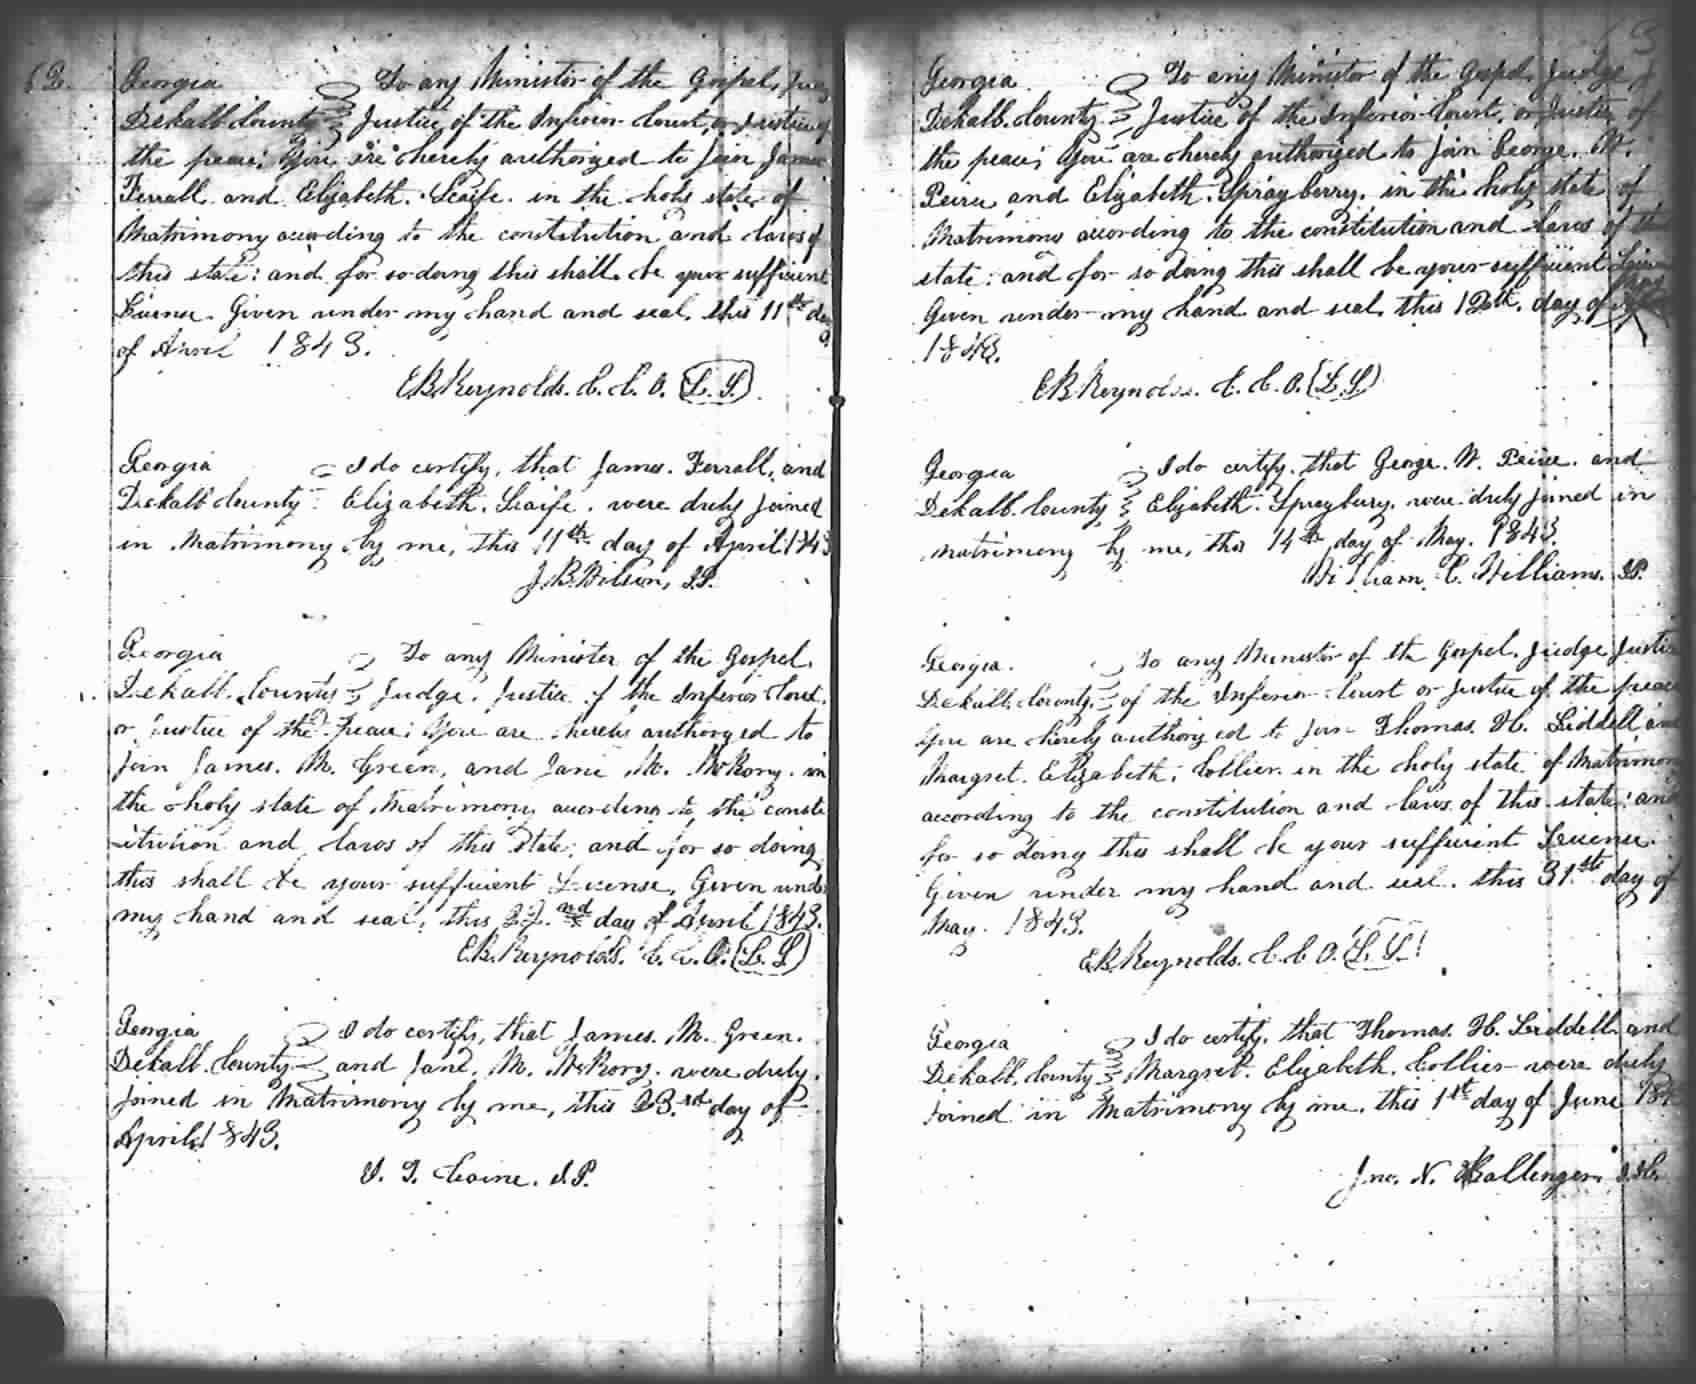 62.
Georgia To any Minister of the Gospel, Jud
Dekalb County Justice of the Inferior Court, or Justice of
the peace; You are hereby authorized to join James
Ferrall and Elizabeth. Scaife. in the holy state of
Matrimony according to the constitution and laws of
this state: and for so doing this shall be your sufficient
License. Given under my hand and seal, this 11th day
of April 1843.
E.B. Reynolds. C. C. O. (L. S.)
Georgia I do certify, that James. Ferrall, and
Dekalb County Elizabeth. Scaife. were duly joined
in Matrimony by me, this 11th day of April 1843
J. B. Wilson, J.P.
Georgia To any Minister of the Gospel.
Dekalb. County Judge. Justice of the Inferior Court.
or Justice of the Peace; You are hereby authorized to
join James. M. Green, and Jane M. McRory. in
the holy state of Matrimony according to the consti
-itution and laws of this State: and for so doing
this shall be your sufficient License, Given under
my hand and seal, this 22nd day of April 1843.
E.B. Reynolds. C. C. O. (L. S.)
Georgia I do certify, that James. M. Green.
Dekalb. County and Jane. M. McRory. were duly.
joined in Matrimony by me, this 23.rd day of
April 1843.
J. T. Caine. J.P.
63
Georgia. To any Minister of the Gospel Judge
Dekalb. County Justice of the Inferior Court, or Justice of
the peace; You are hereby authorized to join George. W.
Peire and Elizabeth. Sprayberry. in the holy state of
Matrimony according to the constitution and laws of this
state: and for so doing this shall be your sufficient License
Given under my hand and seal, this 12th. day of May
1843.
E B Reynolds. C. C. O. (L.S.)
Georgia I do certify. that George. W. Peire. and
Dekalb. County Elizabeth. Sprayberry. were duly joined in
matrimony by me, this 14th day of May. 1843.
William C. Williams. J.P.
Georgia. To any Minister of the Gospel. Judge Justice
Dekalb. County. of the Inferior Court or Justice of the peace
You are hereby authorized to join Thomas. H. Liddell and
Margret. Elizabeth. Collier in the holy state of Matrimony
according to the constitution and laws of this state: and
for so doing this shall be your sufficient License.
Given under my hand and seal. this 31.st day of
May. 1843.
E.B. Reynolds. C. C. O. (L. S.)
Georgia I do certify. that Thomas. H. Liddell. and
Dekalb. County Margret. Elizabeth. Collier were duly
Joined in Matrimony by me, this 1st day of June 184
Jno. N. Ballenger. J.I.C.